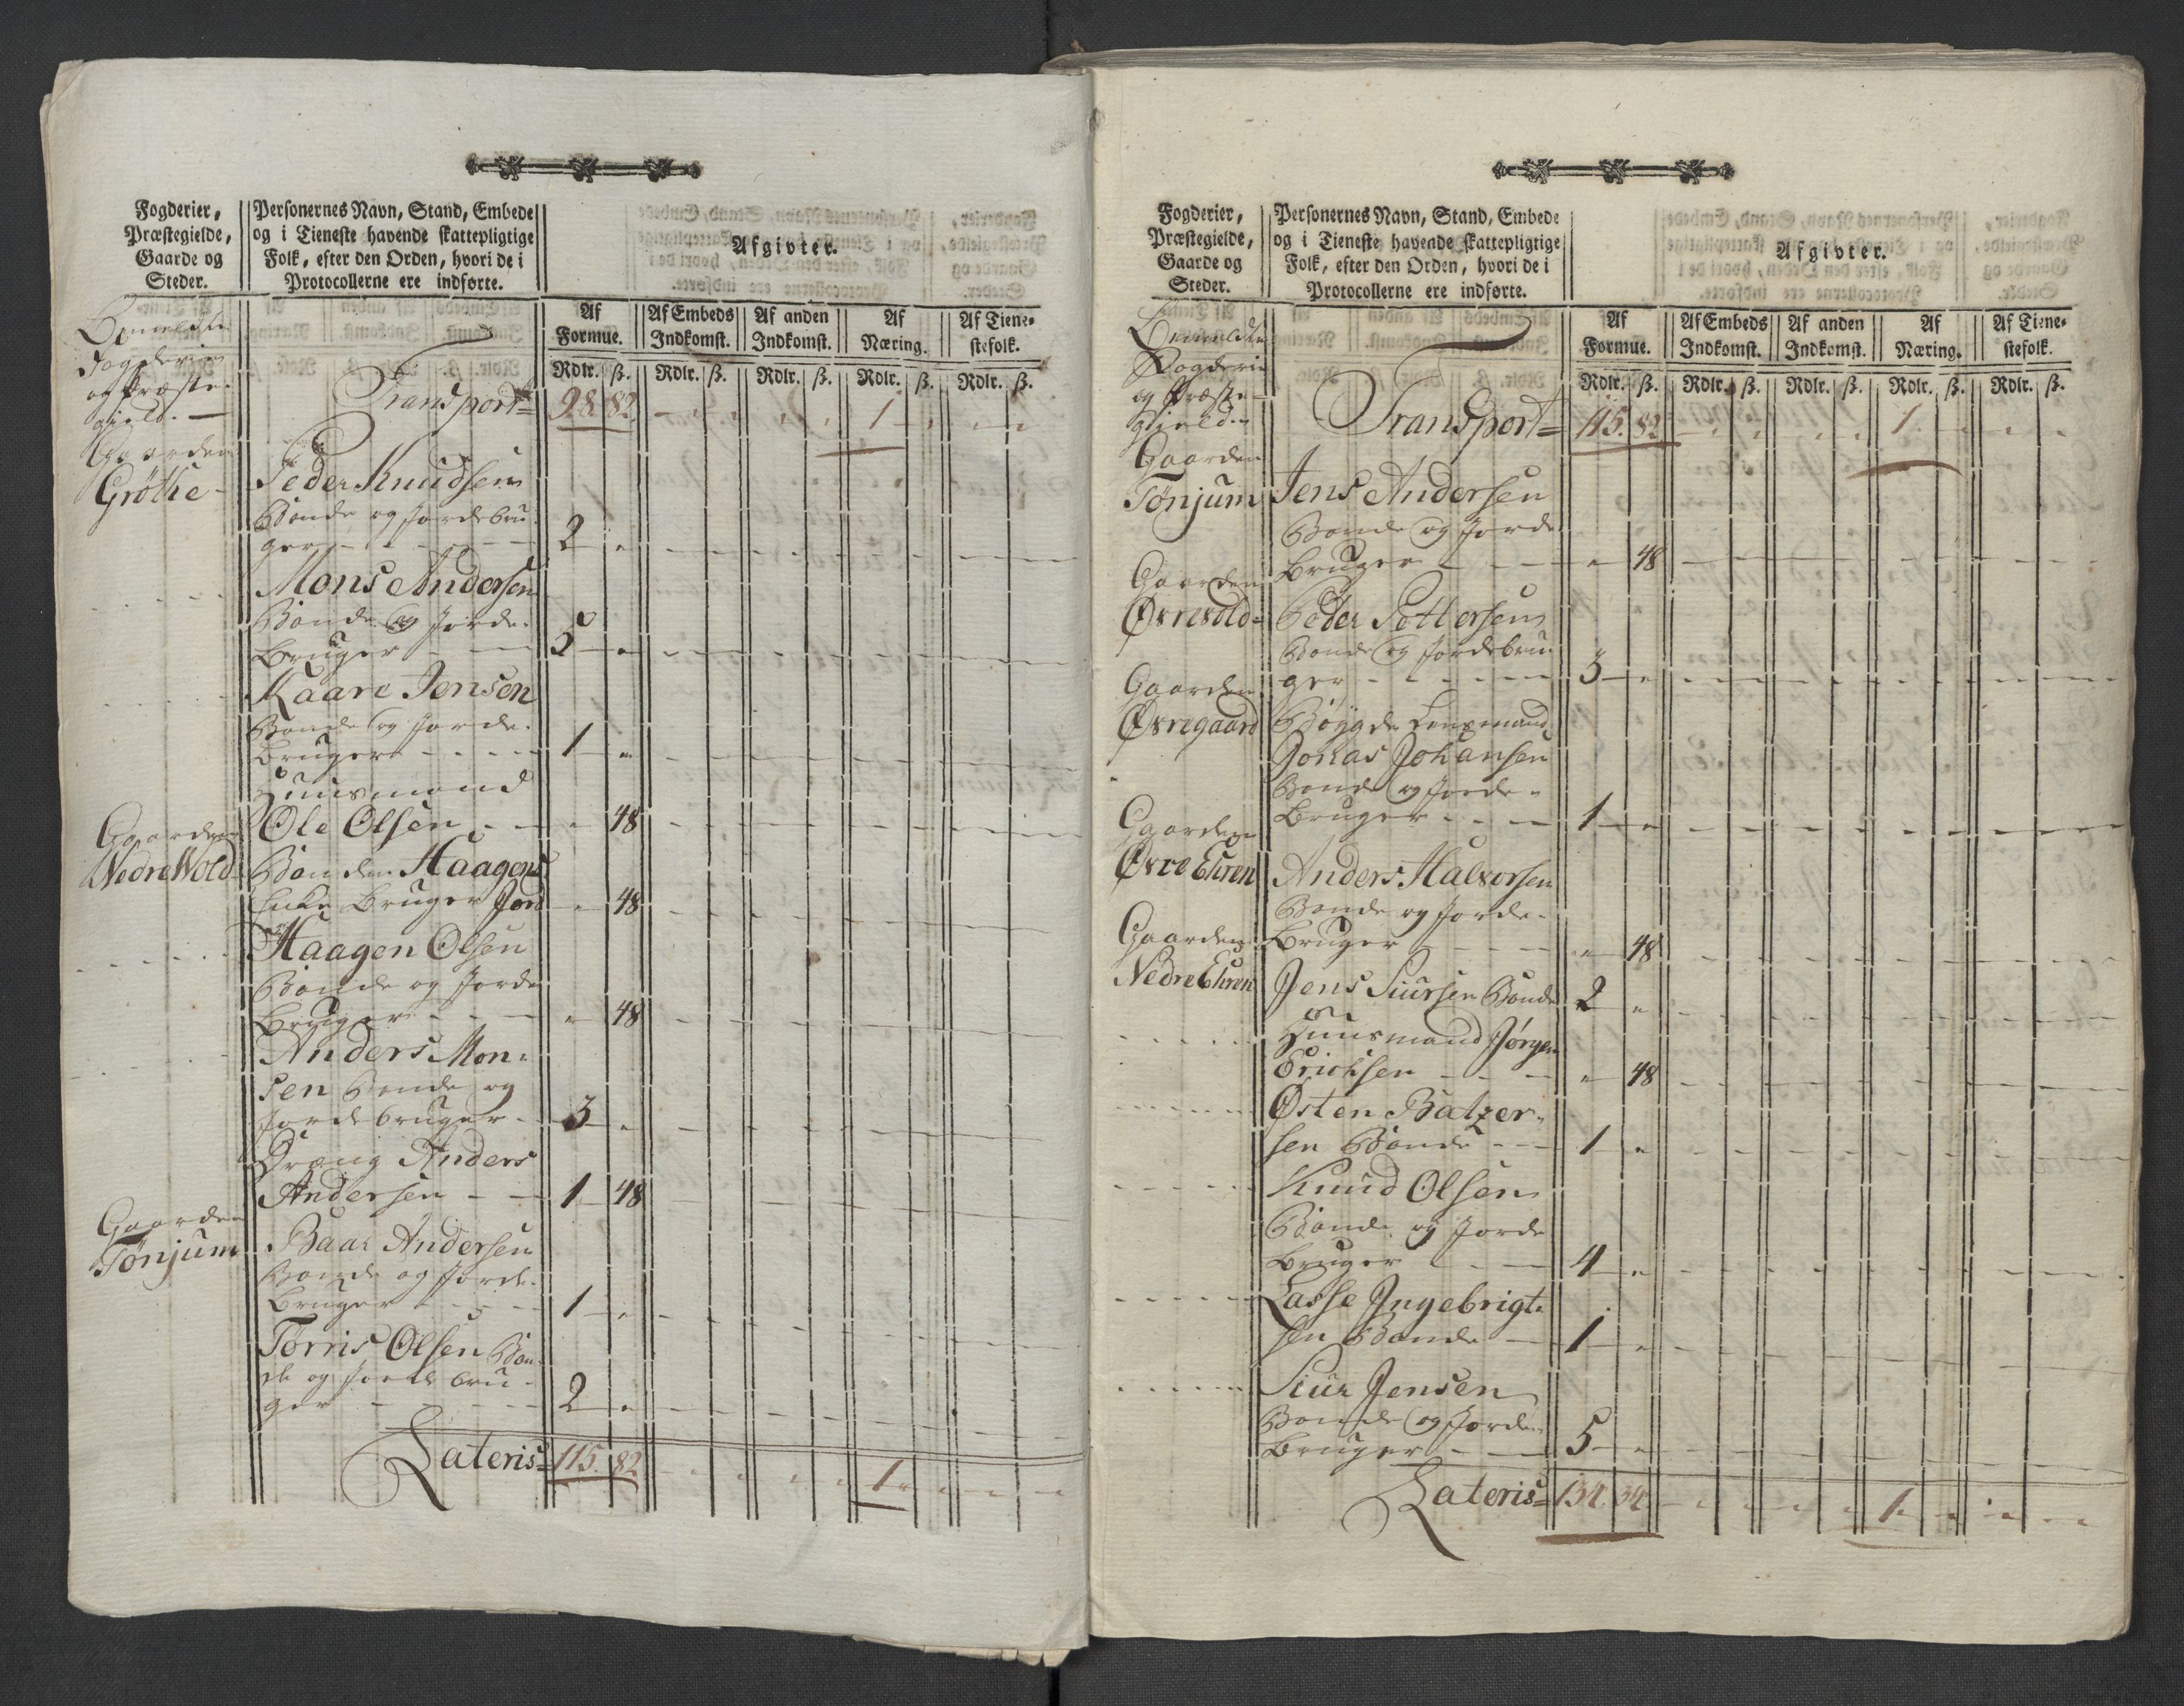 Fogderier,
Præstegielde,
Gaarde og
Steder.
Personernes Navn, Stand, Embede
og i Tieneste havende skattepligtige
Folk, efter den Orden, hvori de i
Protocollerne ere indførte.
Afgivter.
Af
Formue.
Af Embeds
Indkomst.
Af anden
Indkomst.
Af
Næring.
Af Tiene-
stefolk.
Rdlr. ß. Rdlr. ß. Rdlr. ß. Rdlr. ß. Rdlr. ß.
Bemeldte
Fogderie
og Præste-
gield.
Transport 98. 82. 1
Gaarden
Grøthe
Peder Knudsen
Bonde og Jordebru-
ger 2
Mons Andersen
Bonde og Jorde-
Bruger 5
Kaare Jensen
Bonde og Jorde-
Bruger 1
Huusmand
Ole Olsen 48
Gaarden
Nedre Wold
Bonden Haagens
Enke Bruger Jord 48
Haagen Olsen
Bonde og Jorde
Bruger 48
Anders Mon-
sen Bonde og
Jordebruger 3
Dreng Anders
Andersen 1 48
Gaarden
Tønjum
Baar Andersen
Bonde og Jorde-
Bruger 1
Tørris Olsen Bon-
de og Jordebru-
ger 2
Lateris 115. 82 1
Fogderier,
Præstegielde,
Gaarde og
Steder.
Personernes Navn, Stand, Embede
og i Tieneste havende skattepligtige
Folk, efter den Orden, hvori de i
Protocollerne ere indførte.
Afgivter.
Af
Formue.
Af Embeds
Indkomst.
Af anden
Indkomst.
Af
Næring.
Af Tiene-
stefolk.
Rdlr. ß. Rdlr. ß. Rdlr. ß. Rdlr. ß. Rdlr. ß.
Bemeldte
Fogderie
og Præste-
gield
Transport 115. 82 1.
Gaarden
Tønjum
Jens Andersen
Bonde og Jorde
Bruger 48
Gaarden
Øvrevold
Peder Pettersen
Bonde og Jordebru-
ger 3
Gaarden
Øvregaard
Bøygde Lensmand
Jonas Johansen
Bonde og Jorde-
Bruger 1
Gaarden
Øvre Ehren
Anders Halvorsen
Bonde og Jorde-
Bruger 48
Gaarden
Nedre Ehren
Jens Siursen Bonde 2
Huusmand Jørgen
Erichsen 48
Østen Baltzer-
sen Bonde 1
Knud Olsen
Bonde og Jorde
Bruger 4
Lasse Jngebrigt-
sen Bonde 1
Siur Jensen
Bonde og Jorde-
Bruger 5
Lateris 134. 34. 1.